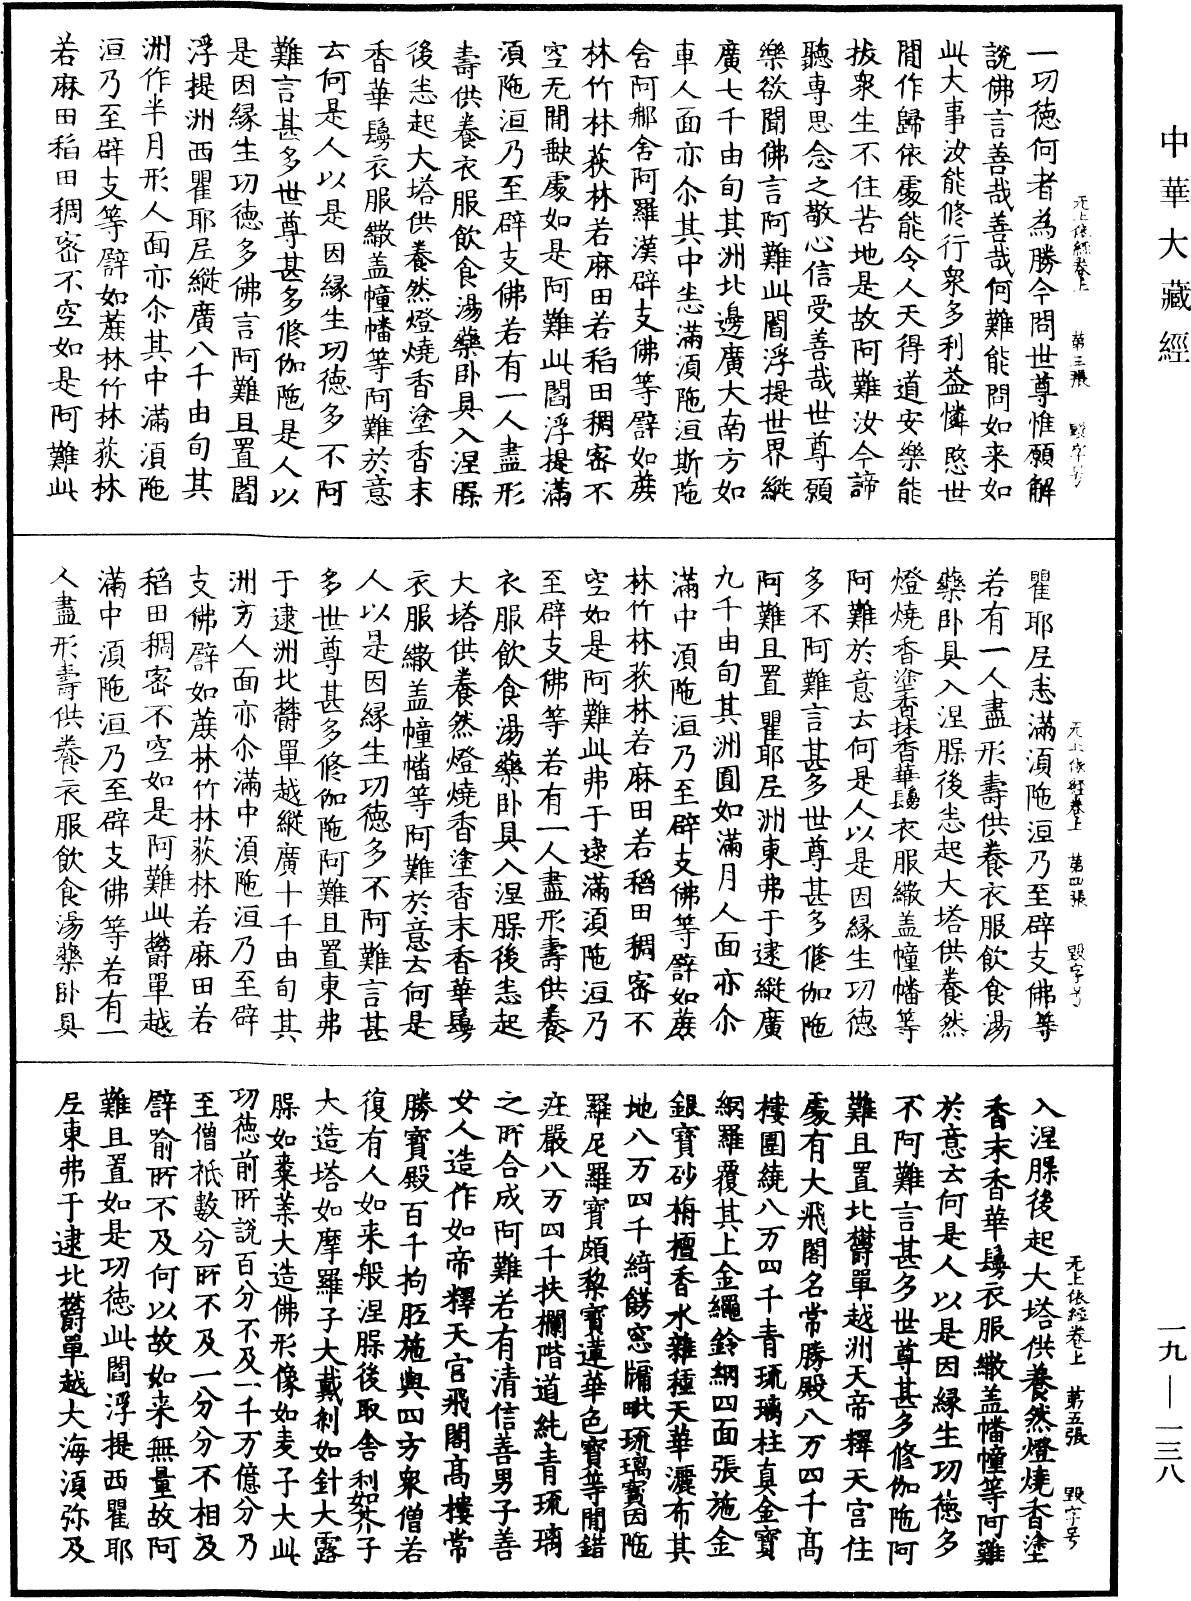 中華大藏經
一功徳何者為勝今問世尊惟願解
説佛言善哉善哉何難能問如来如
此大事汝能修行衆多利益憐愍世
閒作歸依處能令人天得道安樂能
拔衆生不住苦地是故阿難汝今諦
聽專思念之敬心信受善哉世尊願
樂欲聞佛言阿難此閻浮提世界縱
廣七千由旬其洲北邊廣大南方如
車人面亦尒其中悉滿湏陁洹斯陁
含阿那含阿羅漢辟支佛等譬如蔗
林竹林荻林若麻田若稻田稠密不
空无閒獸處如是阿難此閻浮提滿
湏陁洹乃至辟支佛若有一人盡形
壽供養衣服飲食湯藥卧具入涅槃
後悉起大塔供養然燈燒香塗香末
香華鬘衣服繖盖幢幡等阿難於意
云何是人以是因縁生功徳多不阿
難言甚多世尊甚多修伽陁是人以
是因縁生功徳多佛言阿難且置閻
浮提洲西瞿耶尼縱廣八千由旬其
洲作半月形人面亦尒其中滿湏陁
洹乃至辟支等譬如蔗林竹林荻林
若麻田稻田稠密不空如是阿難此
无上依經卷上　第三張　毀字号
瞿耶尼悉滿湏陁洹乃至辟支佛等
若有一人盡形壽供養衣服飲食湯
藥卧具入涅槃後悉起大塔供養然
燈燒香塗香抹香華鬘衣服繖盖幢幡等
阿難於意云何是人以是因縁生功徳
多不阿難言甚多世尊甚多修伽陁
阿難且置瞿耶尼洲東弗于逮縱廣
九千由旬其洲圓如滿月人面亦尒
滿中湏陁洹乃至辟支佛等譬如蔗
林竹林荻林若麻田若稻田稠密不
空如是阿難此弗于逮滿湏陁洹乃
至辟支佛等若有一人盡形壽供養
衣服飲食湯藥卧具入涅槃後悉起
大塔供養然燈燒香塗香末香華鬘
衣服繖盖幢幡等阿難於意云何是
人以是因縁生功徳多不阿難言甚
多世尊甚多修伽陁阿難且置東弗
于逮洲北欝單越縱廣十千由旬其
洲方人面亦尒滿中湏陁洹乃至辟
支佛譬如蔗林竹林荻林若麻田若
稻田稠密不空如是阿難此欝單越
滿中湏陁洹乃至辟支佛等若有一
人盡形壽供養衣服飲食湯藥卧具
无上依經卷上　第四張　毀字号
入涅槃後起大塔供養然燈燒香塗
香末香華鬘衣服繖盖幡幢等阿難
於意云何是人以是因縁生功徳多
不阿難言甚多世尊甚多修伽陁阿
難且置北欝單越洲天帝釋天宫住
處有大飛閣名常勝殿八万四千髙
樓圍繞八万四千青琉璃柱真金寶
網羅覆其上金繩鈴網四面張施金
銀寶砂栴檀香水雜種天華灑布其
地八万四千綺飾窓牖毗琉璃寶因陁
羅尼羅寶頗梨寶蓮華色寶等閒錯
莊嚴八万四千扶欄階道純青琉璃
之所合成阿難若有清信善男子善
女人造作如帝釋天宫飛閣髙樓常
勝寶殿百千拘胝施與四方衆僧若
復有人如来般涅槃後取舍利如芥子
大造塔如摩羅子大戴刹如針大露
槃如棗葉大造佛形像如麦子大此
功徳前所説百分不及一千万億分乃
至僧祇數分所不及一分分不相及
譬喻所不及何以故如来無量故阿
難且置如是功徳此閻浮提西瞿耶
尼東弗于逮北欝單越大海湏弥及
无上依經卷上　第五張　毀字号
一九—一三八